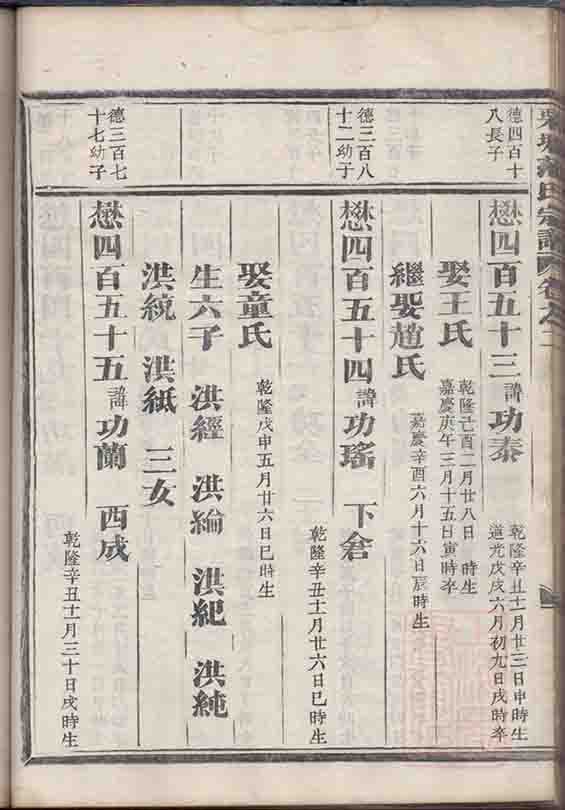 氏宗譜
卷之二
德四百十
八長子
懋四百五十三 諱 功泰
乾隆辛丑十一月廿三日申時生
道光戊戌六月初九日戌時卒
娶王氏
乾隆己酉二月廿八日 時生
嘉慶庚午三月十五日寅時卒
繼娶趙氏 嘉慶辛酉六月十六日辰時生
德三百八
十二幼子
懋四百五十四 諱 功瑤 下倉 乾隆辛丑十一月廿六日巳時生
娶童氏 乾隆戊申五月廿六日巳時生
生六子 洪經 洪綸 洪紀 洪純
洪統 洪紙 三女
德三百七
十七幼子
懋四百五十五 諱 功蘭 西成 乾隆辛丑十一月三十日戌時生